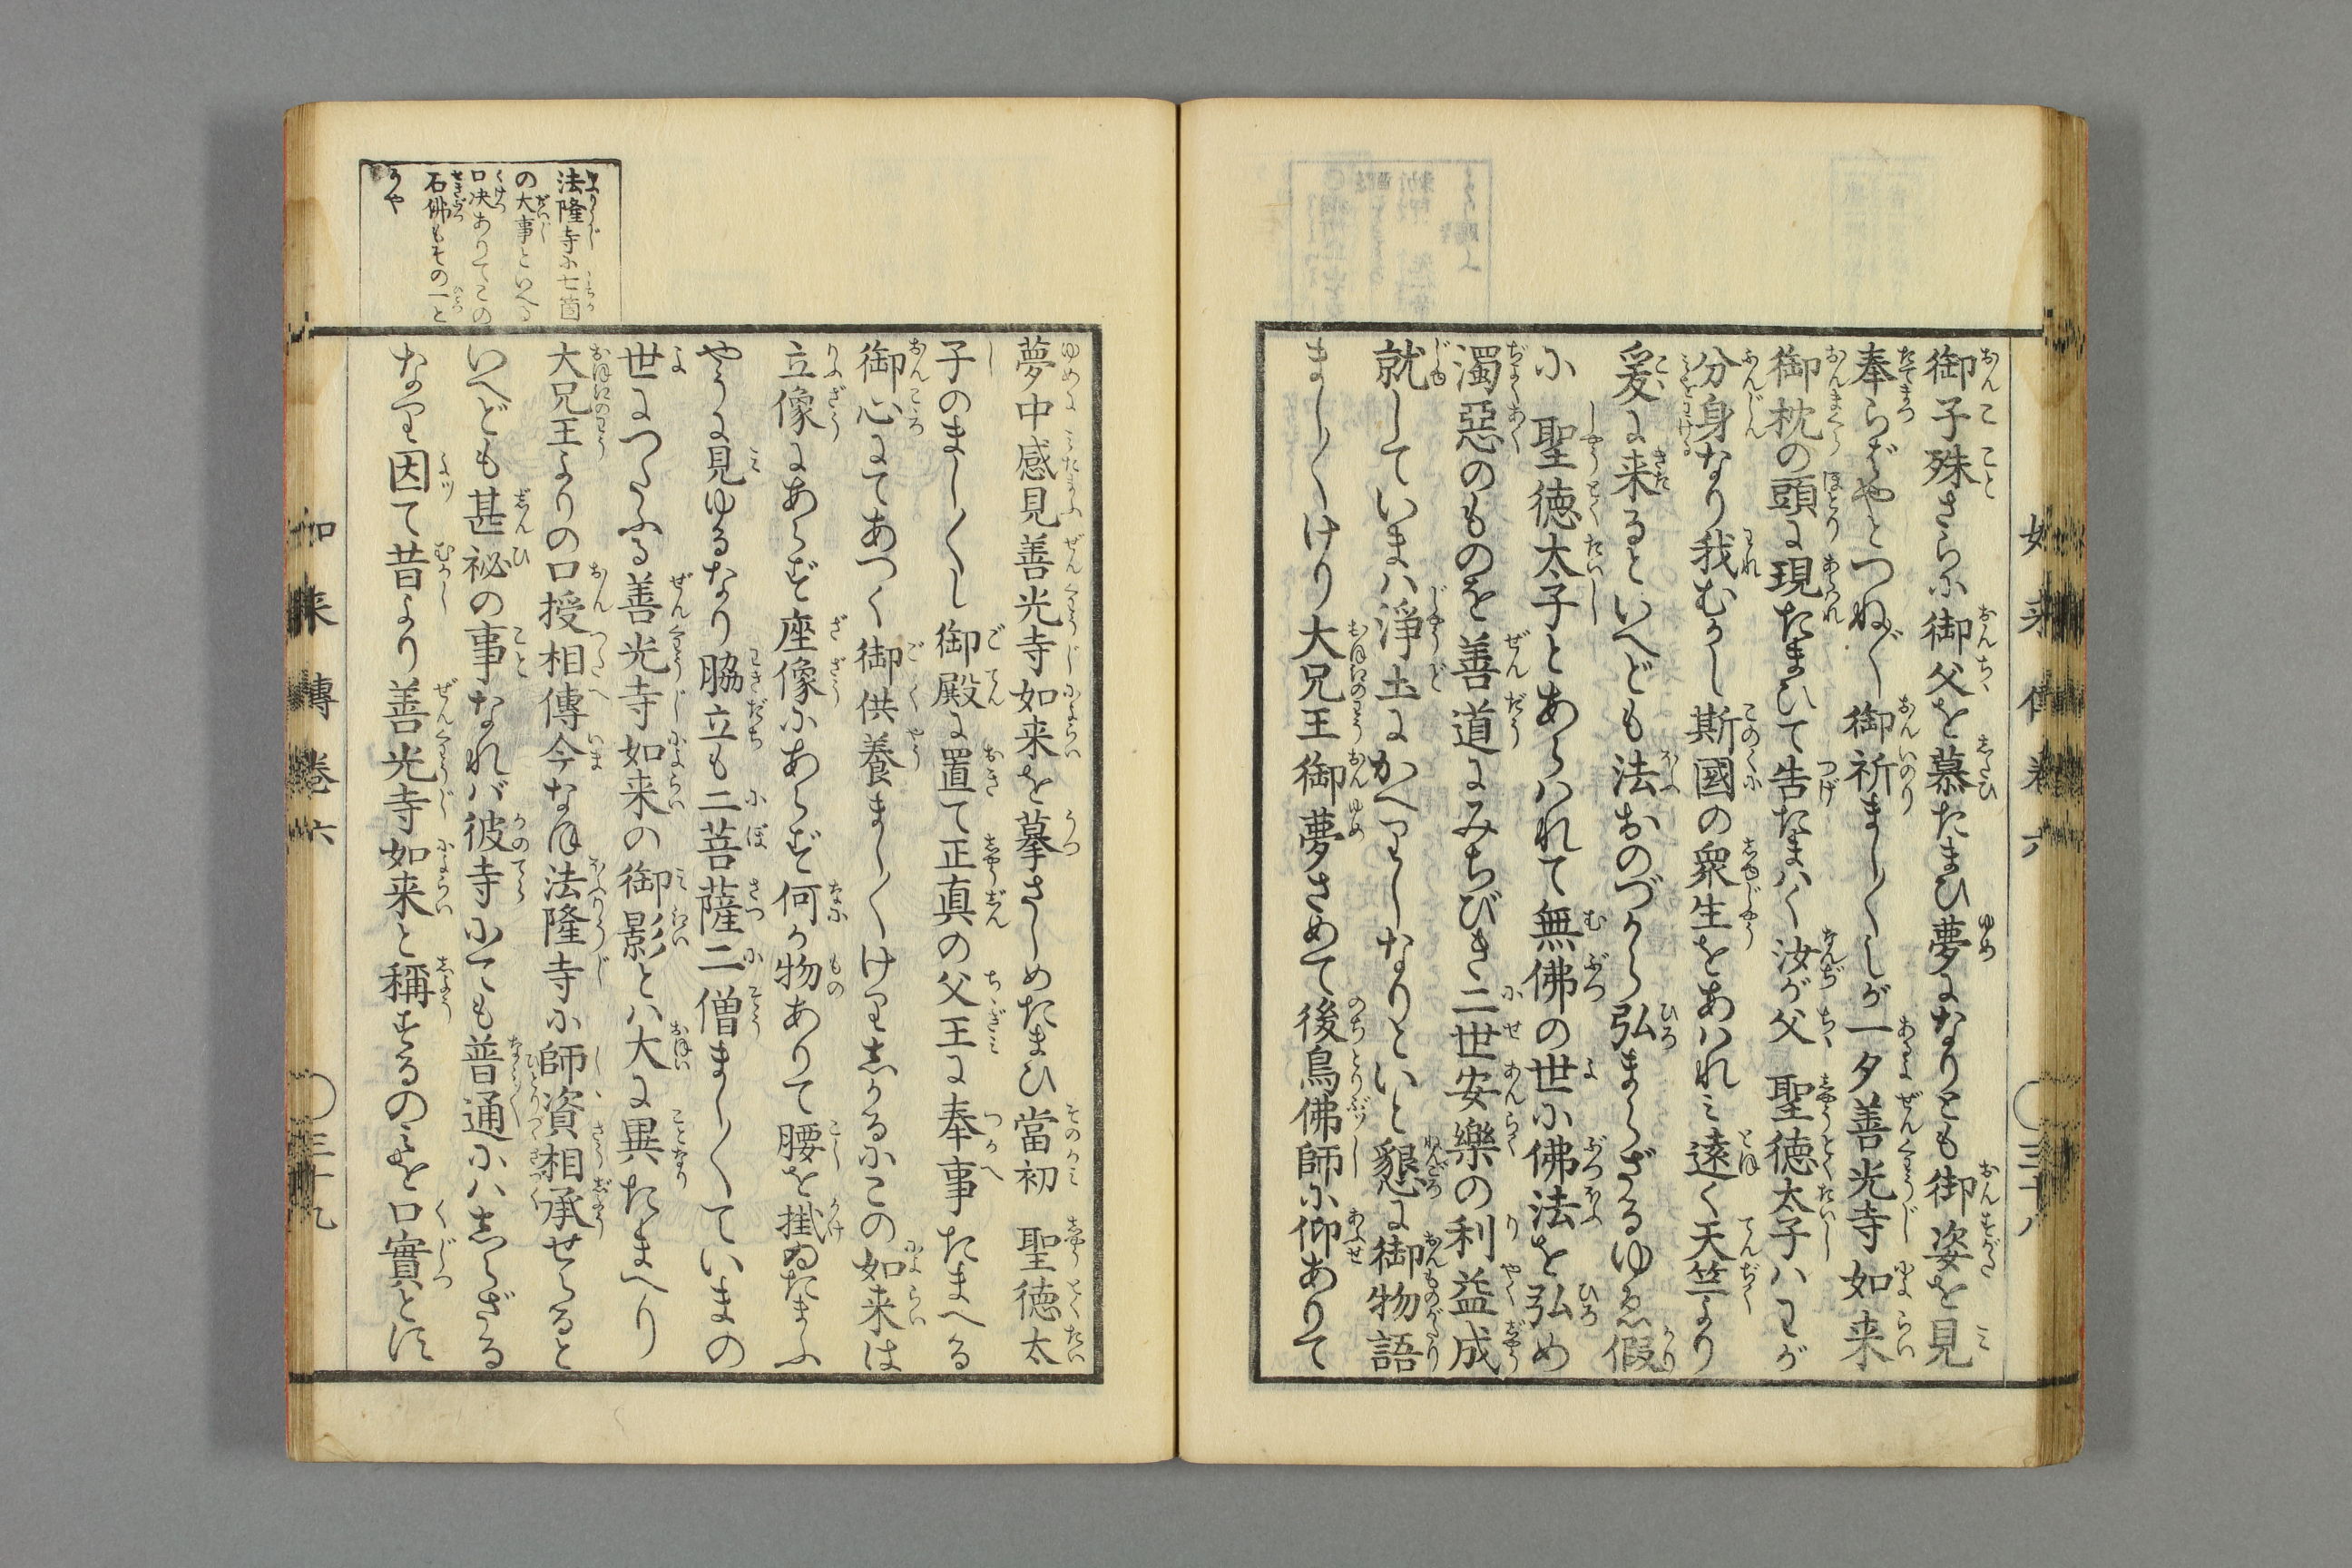 御子殊さらに御父を慕たまひ夢になりとも御姿を見
奉らばやとつね〴〵御祈まし〳〵しが一夕善光寺如来
御枕の頭に現たまひて告たまはく汝が父 聖徳太子ハわが
分身なり我むかし斯國の衆生をあハれミ遠く天竺より
爰に来るといへども法おのづから弘まらざるゆゑ假
に 聖徳太子とあらハれて無佛の世に佛法を弘め
濁惡のものを善道にみちびき二世安樂の利益成
就していまハ淨土にかへりしなりといと懇に御物語
まし〳〵けり大兄王御夢さめて後鳥佛師に仰ありて
夢中感見善光寺如来を摹さしめたまひ當初 聖徳太
子のまし〳〵し御殿に置て正真の父王に奉事たまへる
御心にてあつく御供養まし〳〵けりあかるにこの如来は
立像にあらず座像にあらず何か物ありて腰を掛ゐたまふ
やうに見ゆるなり脇立も二菩薩二僧まし〳〵ていまの
世につたふる善光寺如来の御影とハ大に異たまへり
大兄王よりの口授相傳今なほ法隆寺に師資相承せらると
いへども甚祕の事なれバ彼寺にても普通にハあらざる
なり因て昔より善光寺如来と稱するのミを口實とす
法隆寺に七箇
の大事といへる
口决ありてこの
石佛もその一と
かや
如来傳卷六 〇三十九